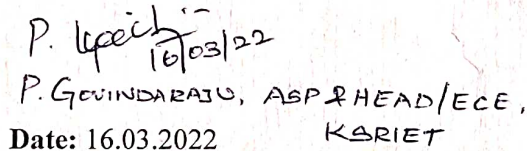 P.
16/03/22
P. GOVINDARAJU, ASP & HEAD/ECE,
KSRIET
Date: 16.03.2022